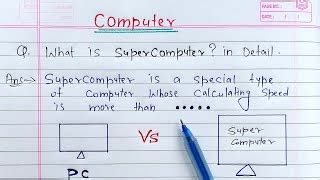 Computer
Q. What is SuperComputer? in Detail.
Ans:→ SuperComputer is a special type
of Computer Whose Calculating Speed
is more than .....
Vs
Super
Computer
PC